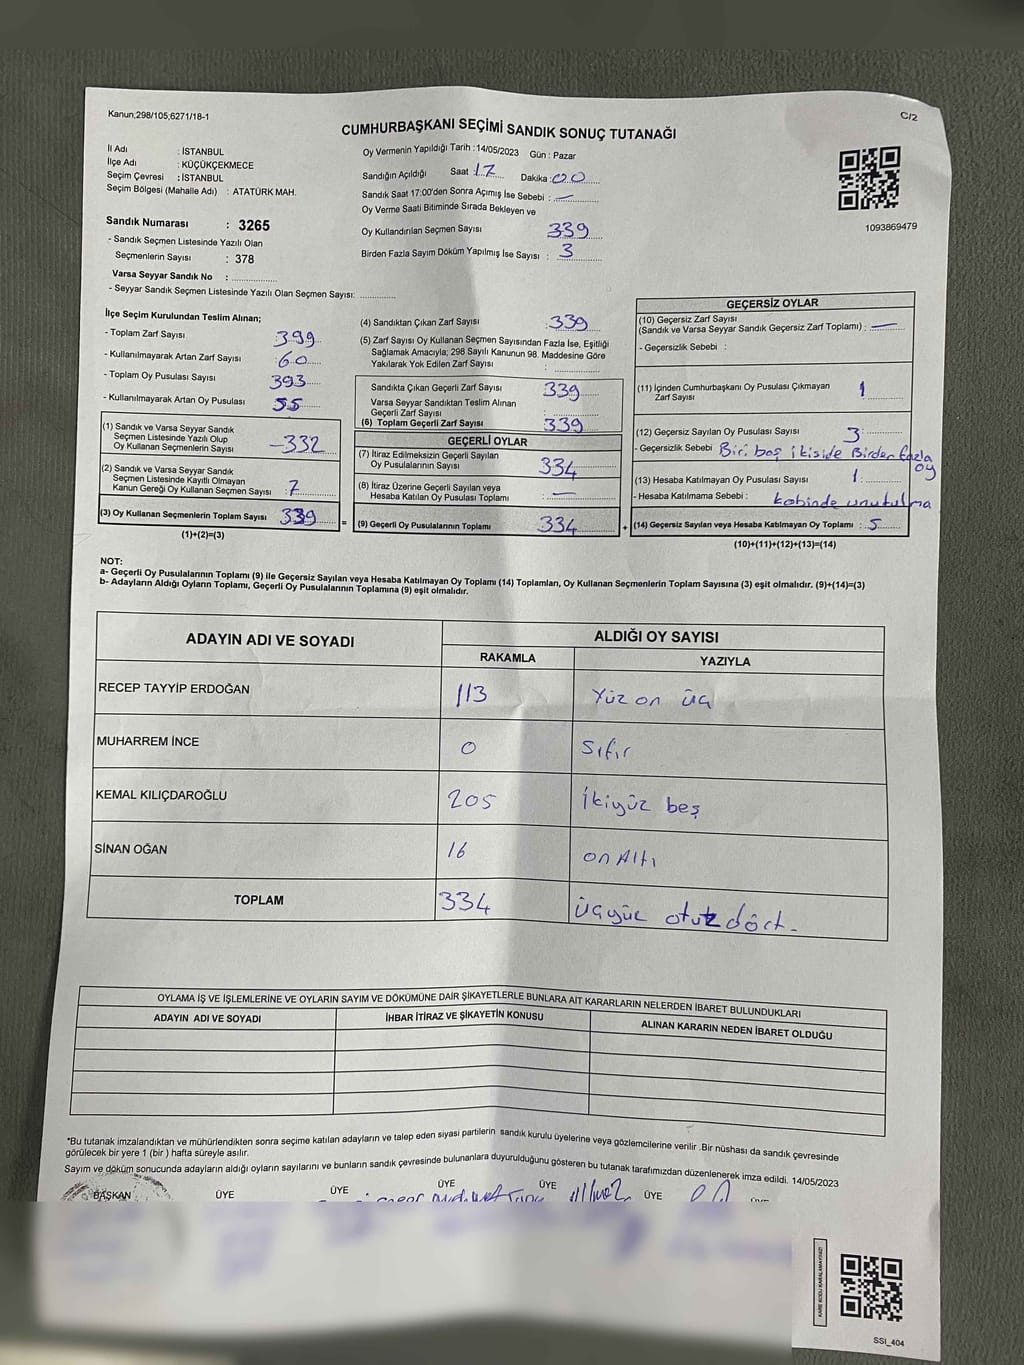 Kanun,298/105,6271/18-1
C/2
CUMHURBAŞKANI SEÇİMİ SANDIK SONUÇ TUTANAĞI
İl Adı : İSTANBUL
İlçe Adı : KÜÇÜKÇEKMECE
Seçim Çevresi : İSTANBUL
Seçim Bölgesi (Mahalle Adı) : ATATÜRK MAH.
Sandık Numarası : 3265
- Sandık Seçmen Listesinde Yazılı Olan
Seçmenlerin Sayısı : 378
Varsa Seyyar Sandık No :
- Seyyar Sandık Seçmen Listesinde Yazılı Olan Seçmen Sayısı:
Oy Vermenin Yapıldığı Tarih : 14/05/2023 Gün : Pazar
Sandığın Açıldığı Saat : 17 Dakika : 00
Sandık Saat 17:00'den Sonra Açımış İse Sebebi : —
Oy Verme Saati Bitiminde Sırada Bekleyen ve
Oy Kullandırılan Seçmen Sayısı 339
Birden Fazla Sayım Döküm Yapılmış İse Sayısı : 3
1093869479
İlçe Seçim Kurulundan Teslim Alınan;
- Toplam Zarf Sayısı 399
- Kullanılmayarak Artan Zarf Sayısı 60
- Toplam Oy Pusulası Sayısı 393
- Kullanılmayarak Artan Oy Pusulası 55
(1) Sandık ve Varsa Seyyar Sandık
Seçmen Listesinde Yazılı Olup
Oy Kullanan Seçmenlerin Sayısı -332
(2) Sandık ve Varsa Seyyar Sandık
Seçmen Listesinde Kayıtlı Olmayan
Kanun Gereği Oy Kullanan Seçmen Sayısı : 7
(3) Oy Kullanan Seçmenlerin Toplam Sayısı 339
(1)+(2)=(3)
=
(4) Sandıktan Çıkan Zarf Sayısı : 339
(5) Zarf Sayısı Oy Kullanan Seçmen Sayısından Fazla İse, Eşitliği
Sağlamak Amacıyla; 298 Sayılı Kanunun 98. Maddesine Göre
Yakılarak Yok Edilen Zarf Sayısı :
Sandıkta Çıkan Geçerli Zarf Sayısı 339
Varsa Seyyar Sandıktan Teslim Alınan
Geçerli Zarf Sayısı :
(6) Toplam Geçerli Zarf Sayısı : 339
GEÇERLİ OYLAR
(7) İtiraz Edilmeksizin Geçerli Sayılan
Oy Pusulalarının Sayısı 334
(8) İtiraz Üzerine Geçerli Sayılan veya
Hesaba Katılan Oy Pusulası Toplamı : —
(9) Geçerli Oy Pusulalarının Toplamı 334
+
GEÇERSİZ OYLAR
(10) Geçersiz Zarf Sayısı
(Sandık ve Varsa Seyyar Sandık Geçersiz Zarf Toplamı) : —
- Geçersizlik Sebebi :
(11) İçinden Cumhurbaşkanı Oy Pusulası Çıkmayan
Zarf Sayısı 1
(12) Geçersiz Sayılan Oy Pusulası Sayısı 3
- Geçersizlik Sebebi Biri boş ikiside Birden fazla
oy
(13) Hesaba Katılmayan Oy Pusulası Sayısı 1
- Hesaba Katılmama Sebebi : kabinde unutulma
(14) Geçersiz Sayılan veya Hesaba Katılmayan Oy Toplamı : 5
(10)+(11)+(12)+(13)=(14)
NOT:
a- Geçerli Oy Pusulalarının Toplamı (9) ile Geçersiz Sayılan veya Hesaba Katılmayan Oy Toplamı (14) Toplamları, Oy Kullanan Seçmenlerin Toplam Sayısına (3) eşit olmalıdır. (9)+(14)=(3)
b- Adayların Aldığı Oyların Toplamı, Geçerli Oy Pusulalarının Toplamına (9) eşit olmalıdır.
ADAYIN ADI VE SOYADI ALDIĞI OY SAYISI
RAKAMLA YAZIYLA
RECEP TAYYİP ERDOĞAN 113 Yüz on üç
MUHARREM İNCE 0 Sıfır
KEMAL KILIÇDAROĞLU 205 İkiyüz beş
SİNAN OĞAN 16 on Altı
TOPLAM 334 üçyüz otuz dört -
OYLAMA İŞ VE İŞLEMLERİNE VE OYLARIN SAYIM VE DÖKÜMÜNE DAİR ŞİKAYETLERLE BUNLARA AİT KARARLARIN NELERDEN İBARET BULUNDUKLARI
ADAYIN ADI VE SOYADI İHBAR İTİRAZ VE ŞİKAYETİN KONUSU ALINAN KARARIN NEDEN İBARET OLDUĞU
*Bu tutanak imzalandıktan ve mühürlendikten sonra seçime katılan adayların ve talep eden siyasi partilerin sandık kurulu üyelerine veya gözlemcilerine verilir .Bir nüshası da sandık çevresinde
görülecek bir yere 1 (bir ) hafta süreyle asılır.
Sayım ve döküm sonucunda adayların aldığı oyların sayılarını ve bunların sandık çevresinde bulunanlara duyurulduğunu gösteren bu tutanak tarafımızdan düzenlenerek imza edildi. 14/05/2023
BAŞKAN ÜYE ÜYE ÜYE ÜYE ÜYE
KARE KODU KARALAMAYINIZ!
SSI_404